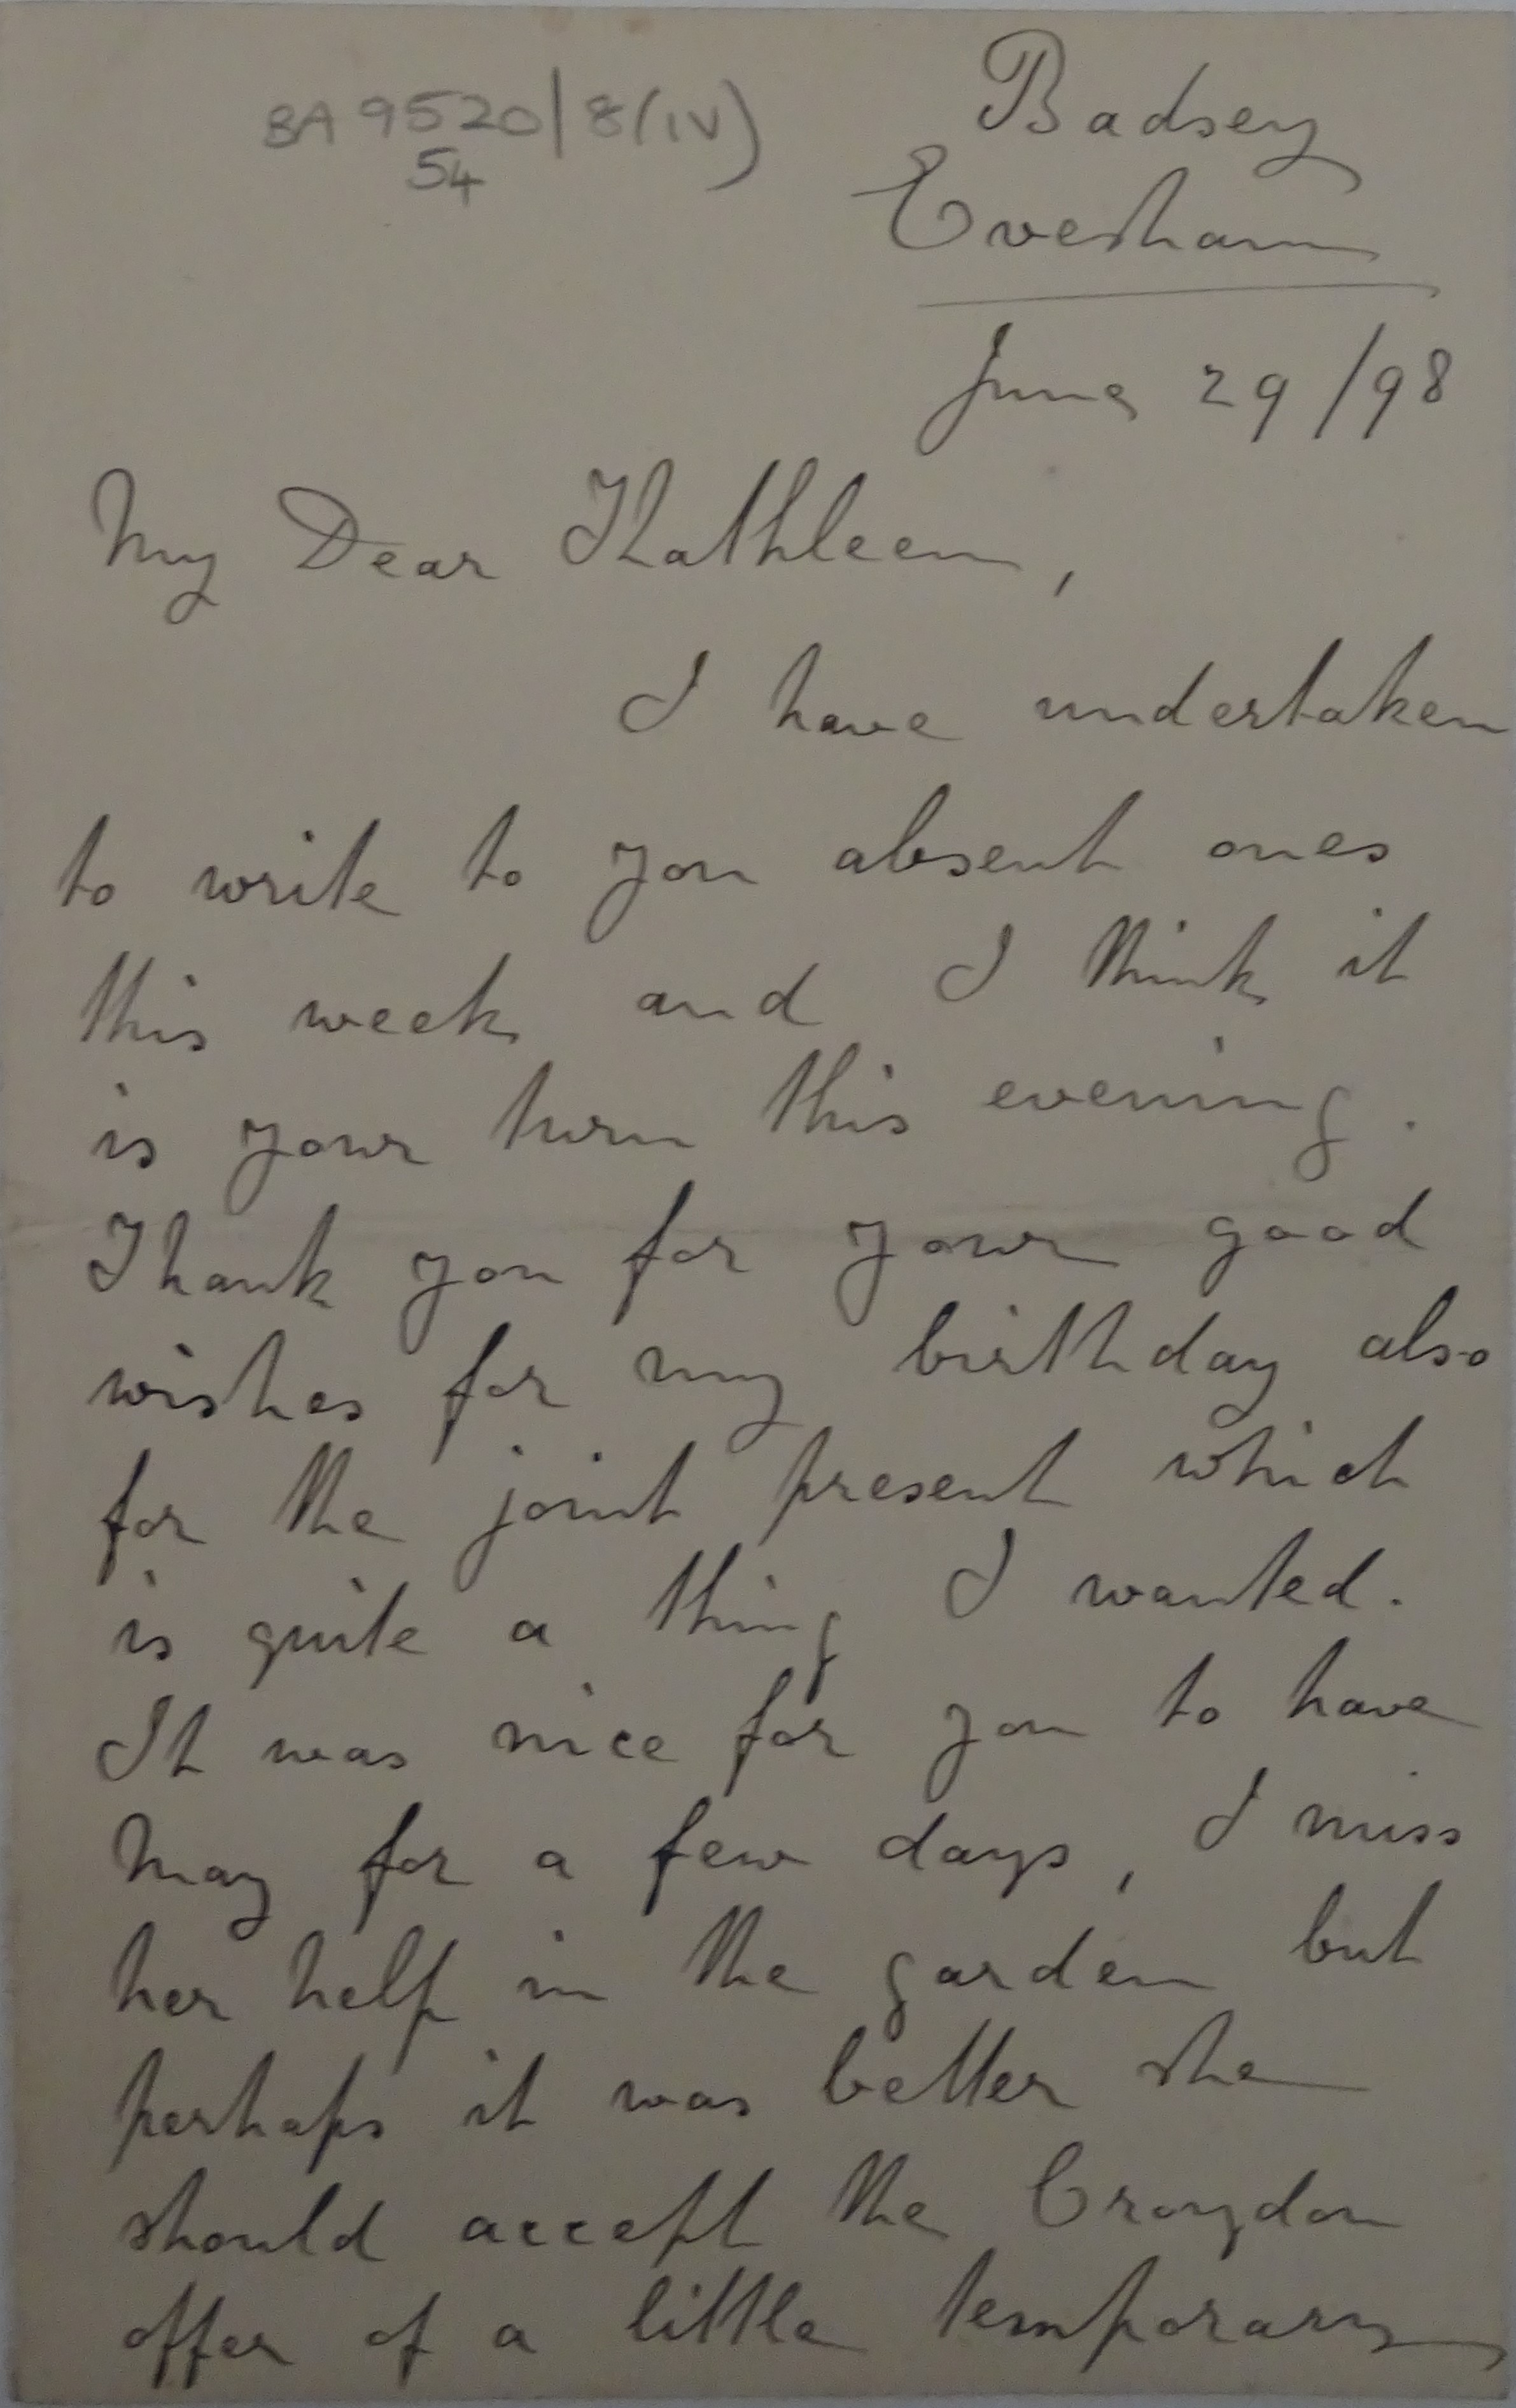 BA 9520/8(IV)
54
Badsey
Evesham
June 29/98
My Dear Kathleen,
I have undertaken
to write to you absent ones
this week and I think it
is your turn this evening.
Thank you for your good
wishes for my birthday also
for the joint present which
is quite a thing I wanted.
It was nice for you to have
May for a few days, I miss
her help in the garden but
perhaps it was better she
should accept the Croydon
offer of a little temporary